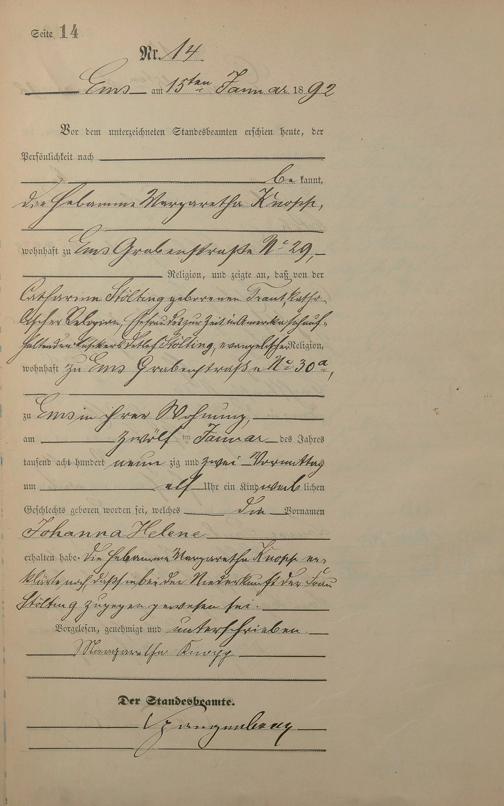 Seite 14
Nr. 14
Ems am 15ten Januar 1892
Vor dem unterzeichneten Standesbeamten erschien heute, der
Persönlichkeit nach
be kannt,
die Hebamme Margaretha Knopp,
wohnhaft zu Ems Grabenstraße No 29,
Religion, und zeigte an, daß von der
Catharina Stölting geborenen Frank, katho-
lischer Religion, Ehefrau des zur Zeit in Amerika sich auf-
haltenden Stölting, evangelischer Religion,
wohnhaft zu Ems Grabenstraße No 30a,
zu Ems in ihrer Wohnung,
am zwölf ten Januar des Jahres
tausend acht hundert neun zig und zwei Vormittag
um elf Uhr ein Kind weib lichen
Geschlechts geboren worden sei, welches die Vornamen
Johanna Helene
erhalten habe. Die Hebamme Margaretha Knopp er-
klärte noch daß sie bei der Niederkunft der Frau
Stölting zugegen gewesen sei.
Vorgelesen, genehmigt und unterschrieben
Margaretha Knopp
Der Standesbeamte.
Spangenberg